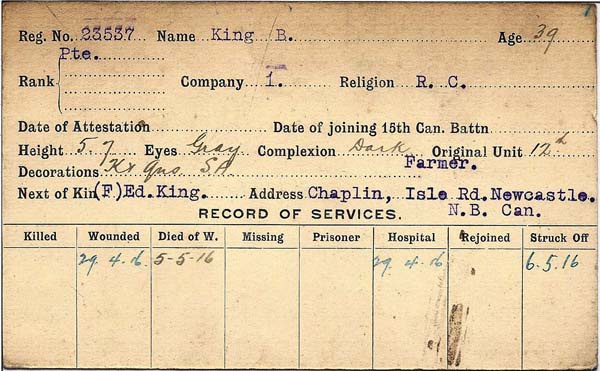 Reg. No. 23537 Name King B. Age 39
Rank Pte. Company 1. Religion R. C.
Date of Attestation Date of joining 15th Can. Battn
Height 5.7 Eyes Gray Complexion Dark Original Unit 12th
Decorations Qns. S.A Farmer.
Next of Kin (F)Ed.King. Address Chaplin, Isle Rd.Newcastle.
N.B. Can.
RECORD OF SERVICES.
Killed Wounded Died of W. Missing Prisoner Hospital Rejoined Struck Off
29.4.16. 5-5-16 29.4.16 6.5.16